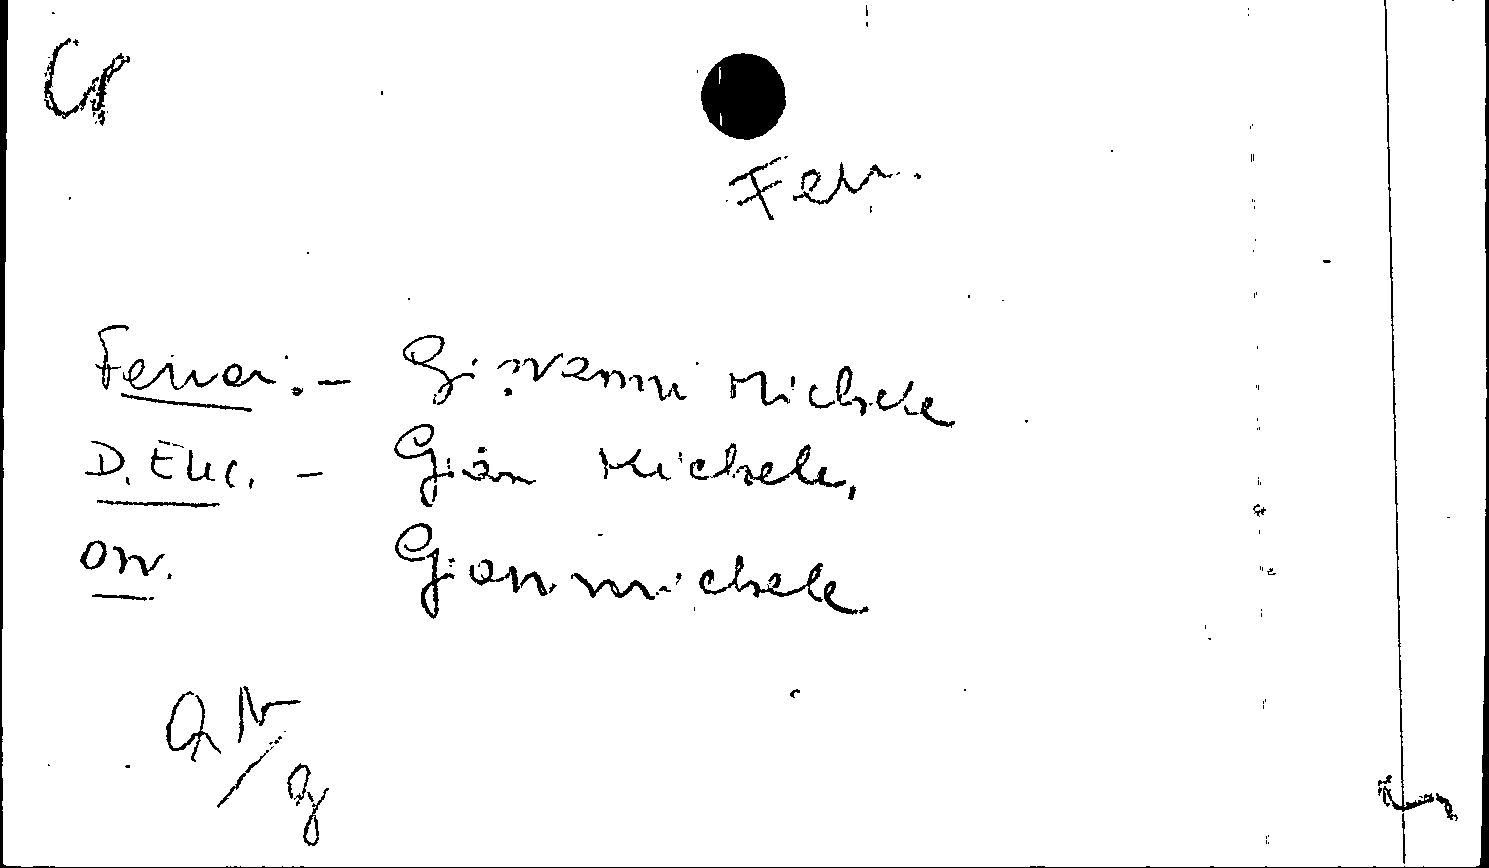 Ferr.
Ferrari. - Giovanni Michele
D. Enc. - Gian Michele,
on. Gianmichele